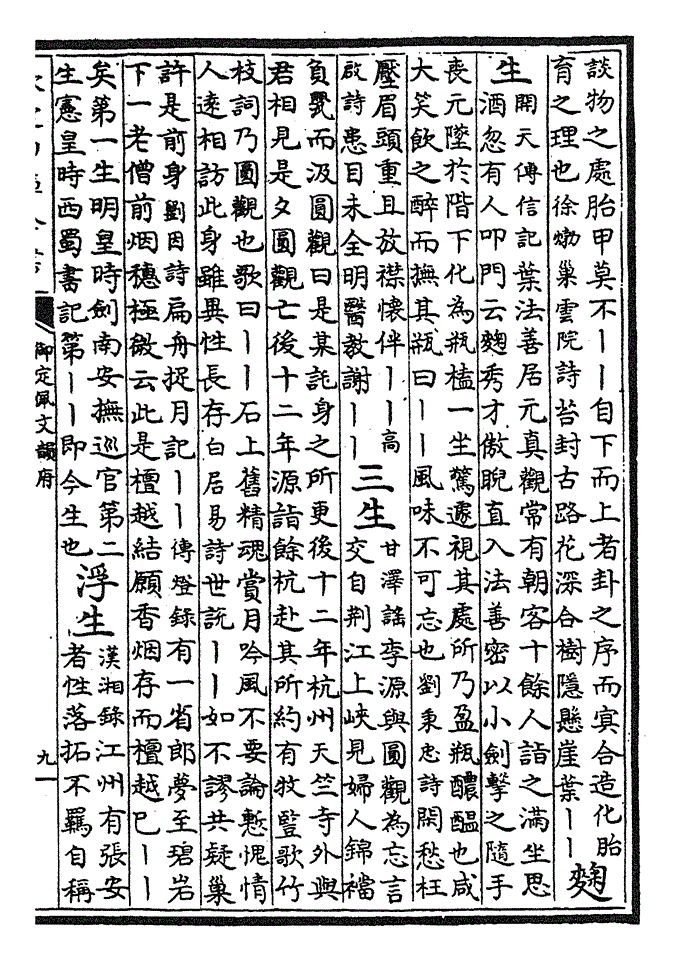 談物之處胎甲莫不丨丨自下而上者卦之序而㝠合造化胎
育之理也徐勣巢雲院詩苔封古路花深合樹隱懸崖葉丨丨
麴
生
開天傳信記葉法善居元真觀常有朝客十餘人詣之滿坐思
酒忽有人叩門云麴秀才傲睨直入法善密以小劍擊之隨手
喪元墜於階下化為瓶榼一坐驚遽視其處所乃盈瓶醲醖也咸
大笑飲之醉而撫其瓶曰丨丨風味不可忘也劉秉忠詩閑愁枉
壓眉頭重且放襟懷伴丨丨高
啟詩患目未全明醫教謝丨丨
三生
甘澤謠李源與圓觀為忘言
交自荆江上峽見婦人錦襠
負甖而汲圓觀曰是某託身之所更後十二年杭州天竺寺外與
君相見是夕圓觀亡後十二年源詣餘杭赴其所約有牧豎歌竹
枝詞乃圓觀也歌曰丨丨石上舊精魂賞月吟風不要論慙愧情
人遠相訪此身雖異性長存白居易詩世説丨丨如不謬共疑巢
許是前身劉因詩扁舟捉月記丨丨傳燈錄有一省郎夢至碧岩
下一老僧前烟穗極微云此是檀越結願香烟存而檀越已丨丨
矣第一生明皇時劍南安撫巡官第二
生憲皇時西蜀書記第丨丨即今生也
浮生
漢湘錄江州有張安
者性落拓不羈自稱
御定佩文韻府
九一